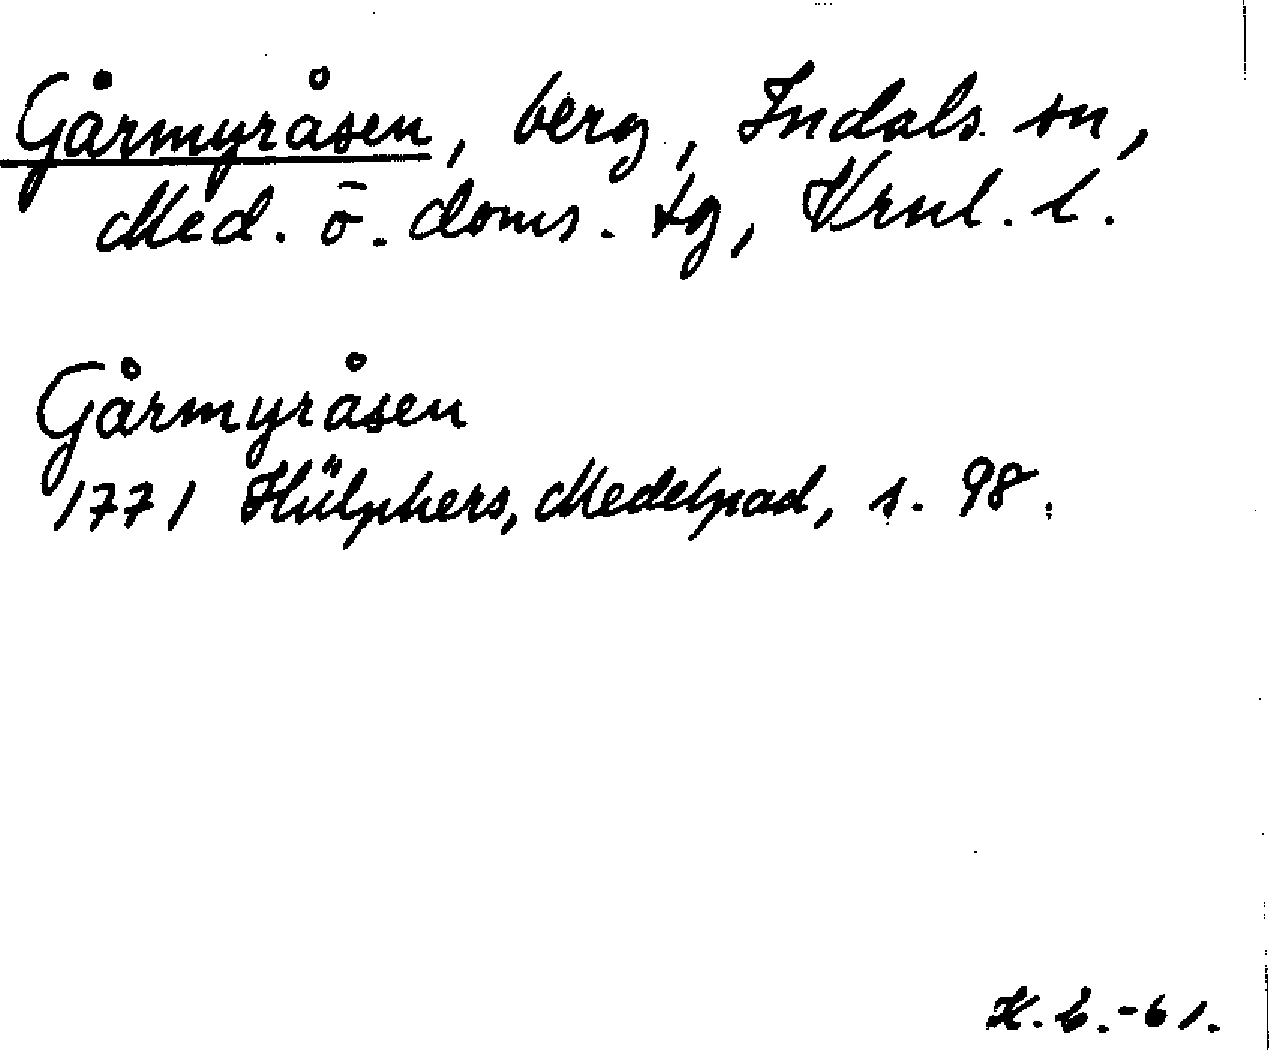 Gårmyråsen, berg, Indals sn,
Med. ö. doms. tg, Vrnl. l.
Gårmyråsen
1771 Hülphers, Medelpad, s. 98.
K.C.-61.